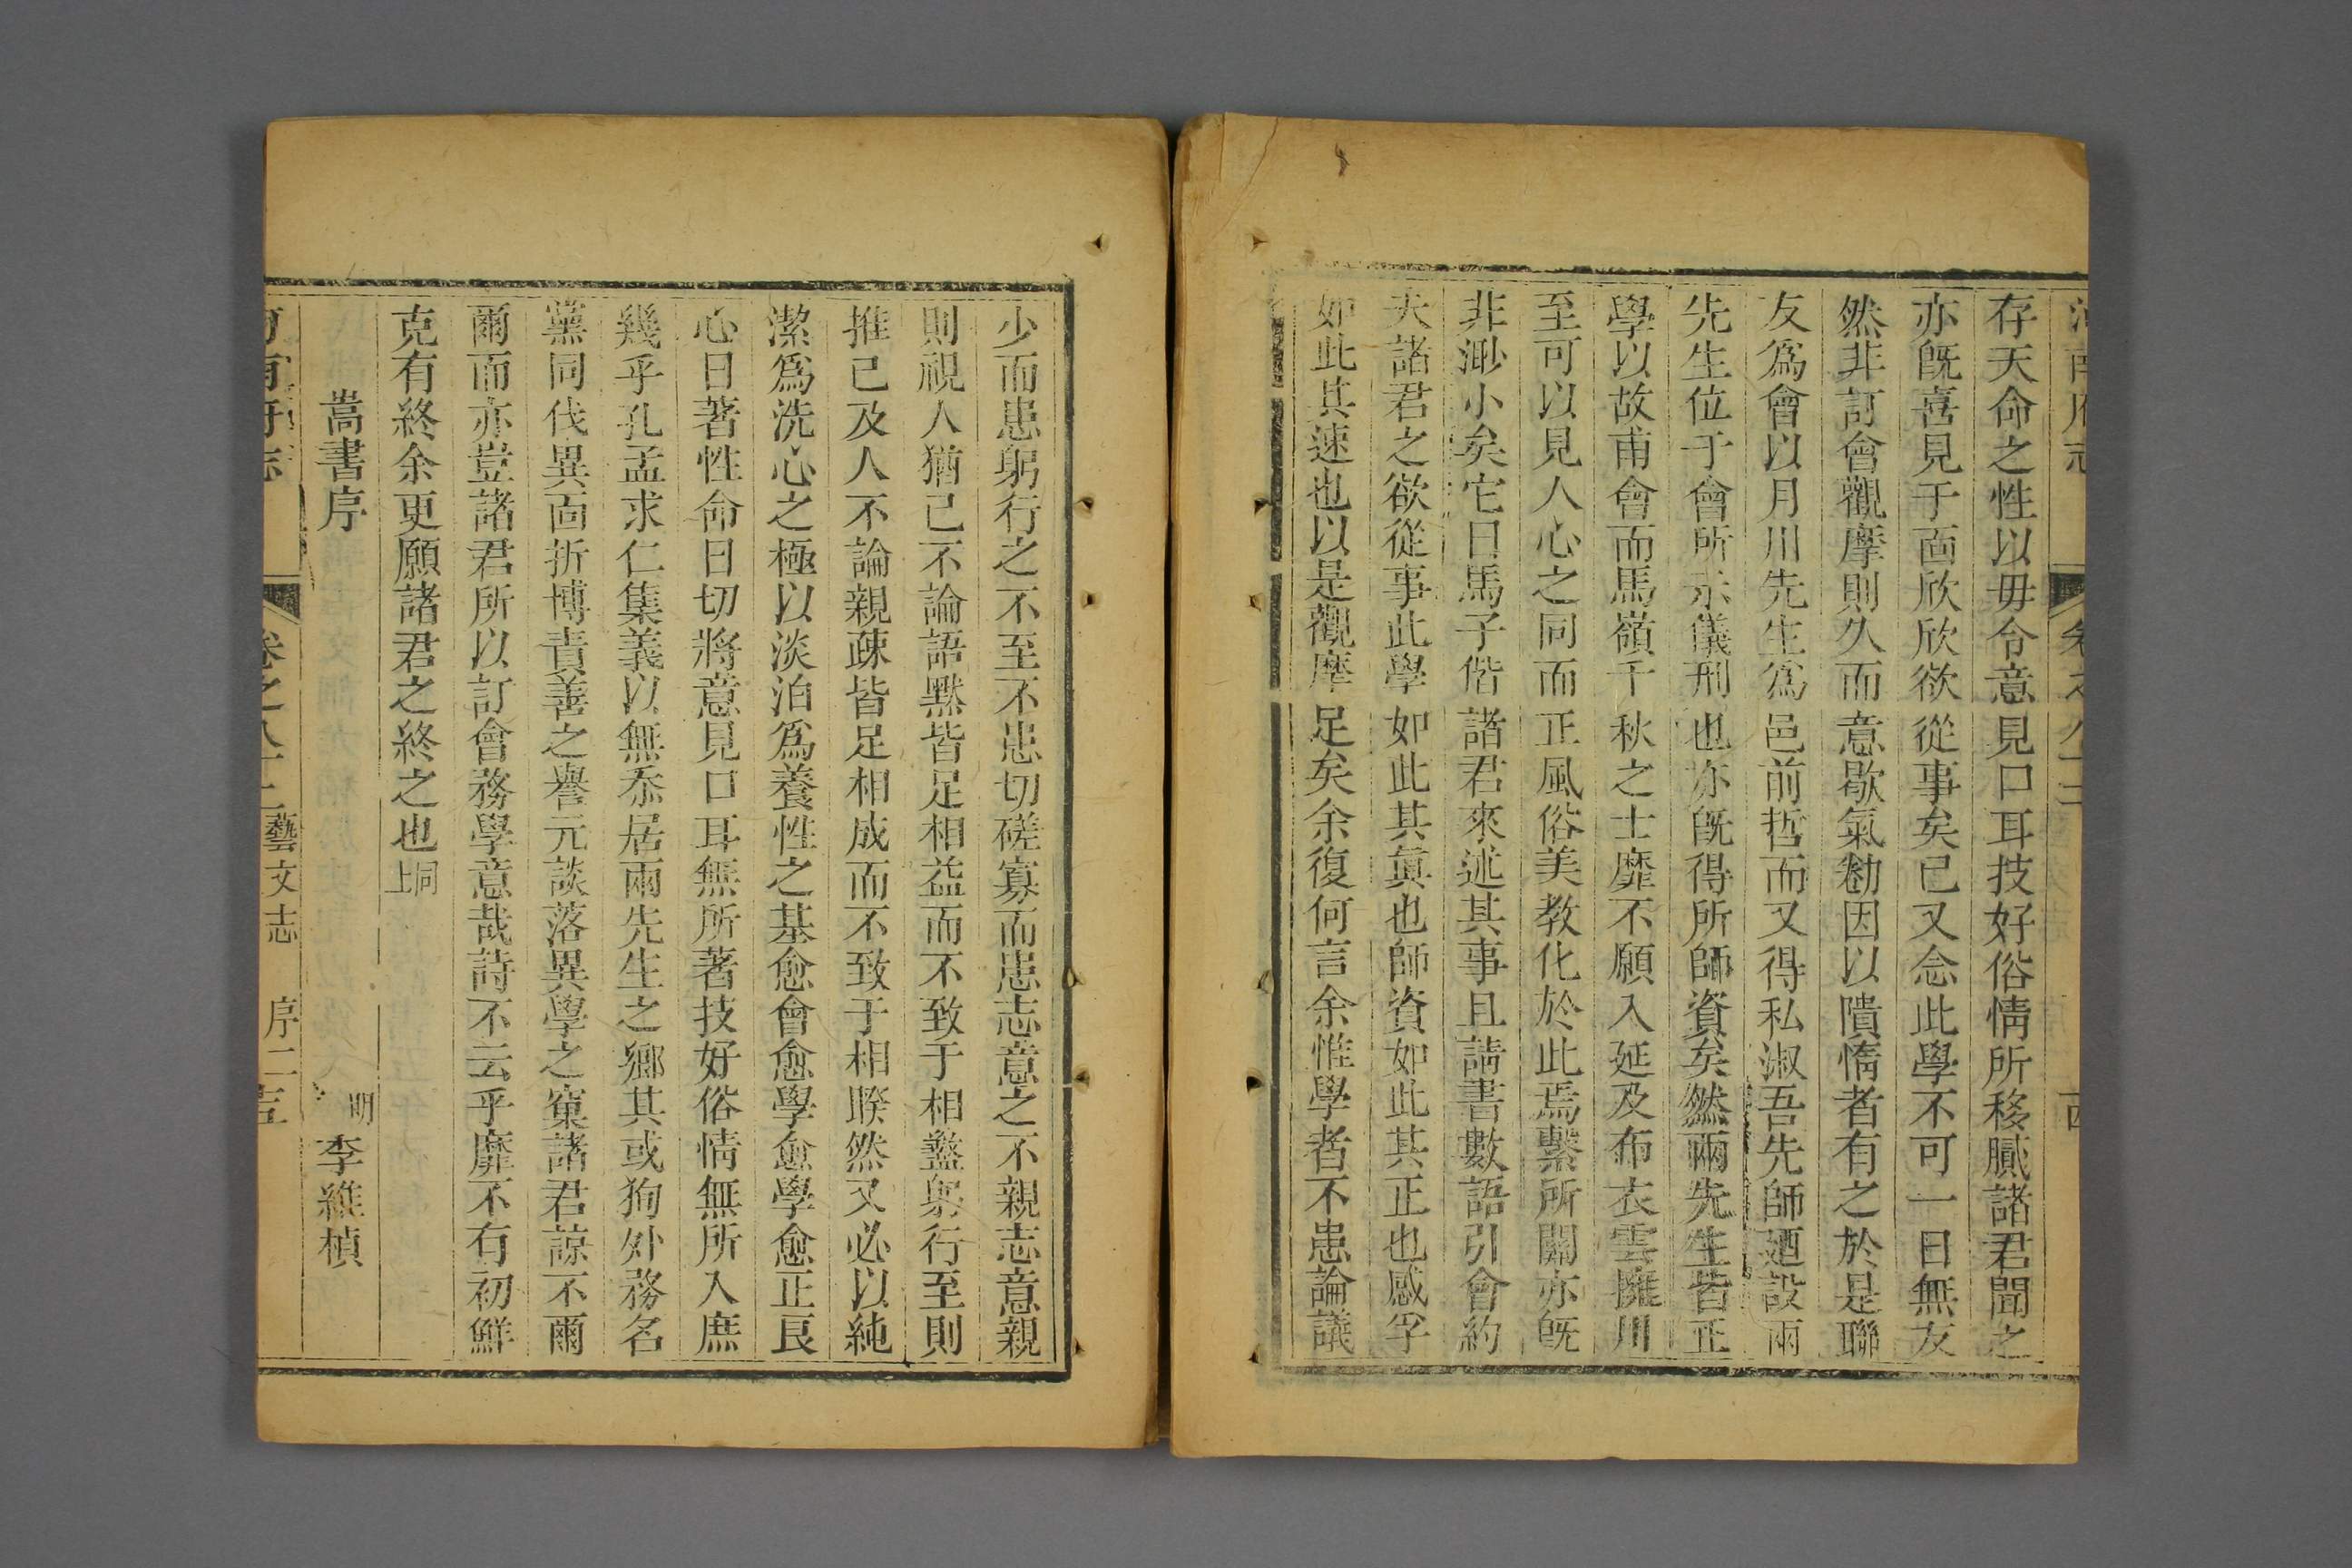 河南府志 卷之八十二 十四
存天命之性以毋令意見口耳技好俗情所移膩諸君聞之
亦旣喜見于面欣欣欲從事矣已又念此學不可一日無友
然非訂會觀摩則久而意歇氣勌因以隤惰者有之於是聯
友爲會以月川先生爲邑前哲而又得私淑吾先師廼設兩
先生位于會所示儀刑也亦旣得所師資矣然兩先生皆正
學以故甫會而馬嶺千秋之士靡不願入延及布衣雲擁川
至可以見人心之同而正風俗美教化於此焉繫所關亦旣
非渺小矣它日馬子偕諸君來述其事且請書數語引會約
夫諸君之欲從事此學如此其眞也師資如此其正也感孚
如此其速也以是觀摩足矣余復何言余惟學者不患論議
少而患躬行之不至不患切磋寡而患志意之不親志意親
則視人猶己不論語默皆足相益而不致于相盭躬行至則
推已及人不論親疎皆足相成而不致于相睽然又必以純
潔爲洗心之極以淡泊爲養性之基愈會愈學愈學愈正良
心日著性命日切將意見口耳無所著技好俗情無所入庶
幾乎孔孟求仁集義以無忝居兩先生之鄉其或狥外務名
黨同伐異面折博責善之譽元談落異學之窠諸君諒不爾
爾而亦豈諸君所以訂會務學意哉詩不云乎靡不有初鮮
克有終余更願諸君之終之也同上
嵩書序 明 李維楨
河南府志 卷之八十二 藝文志 序二